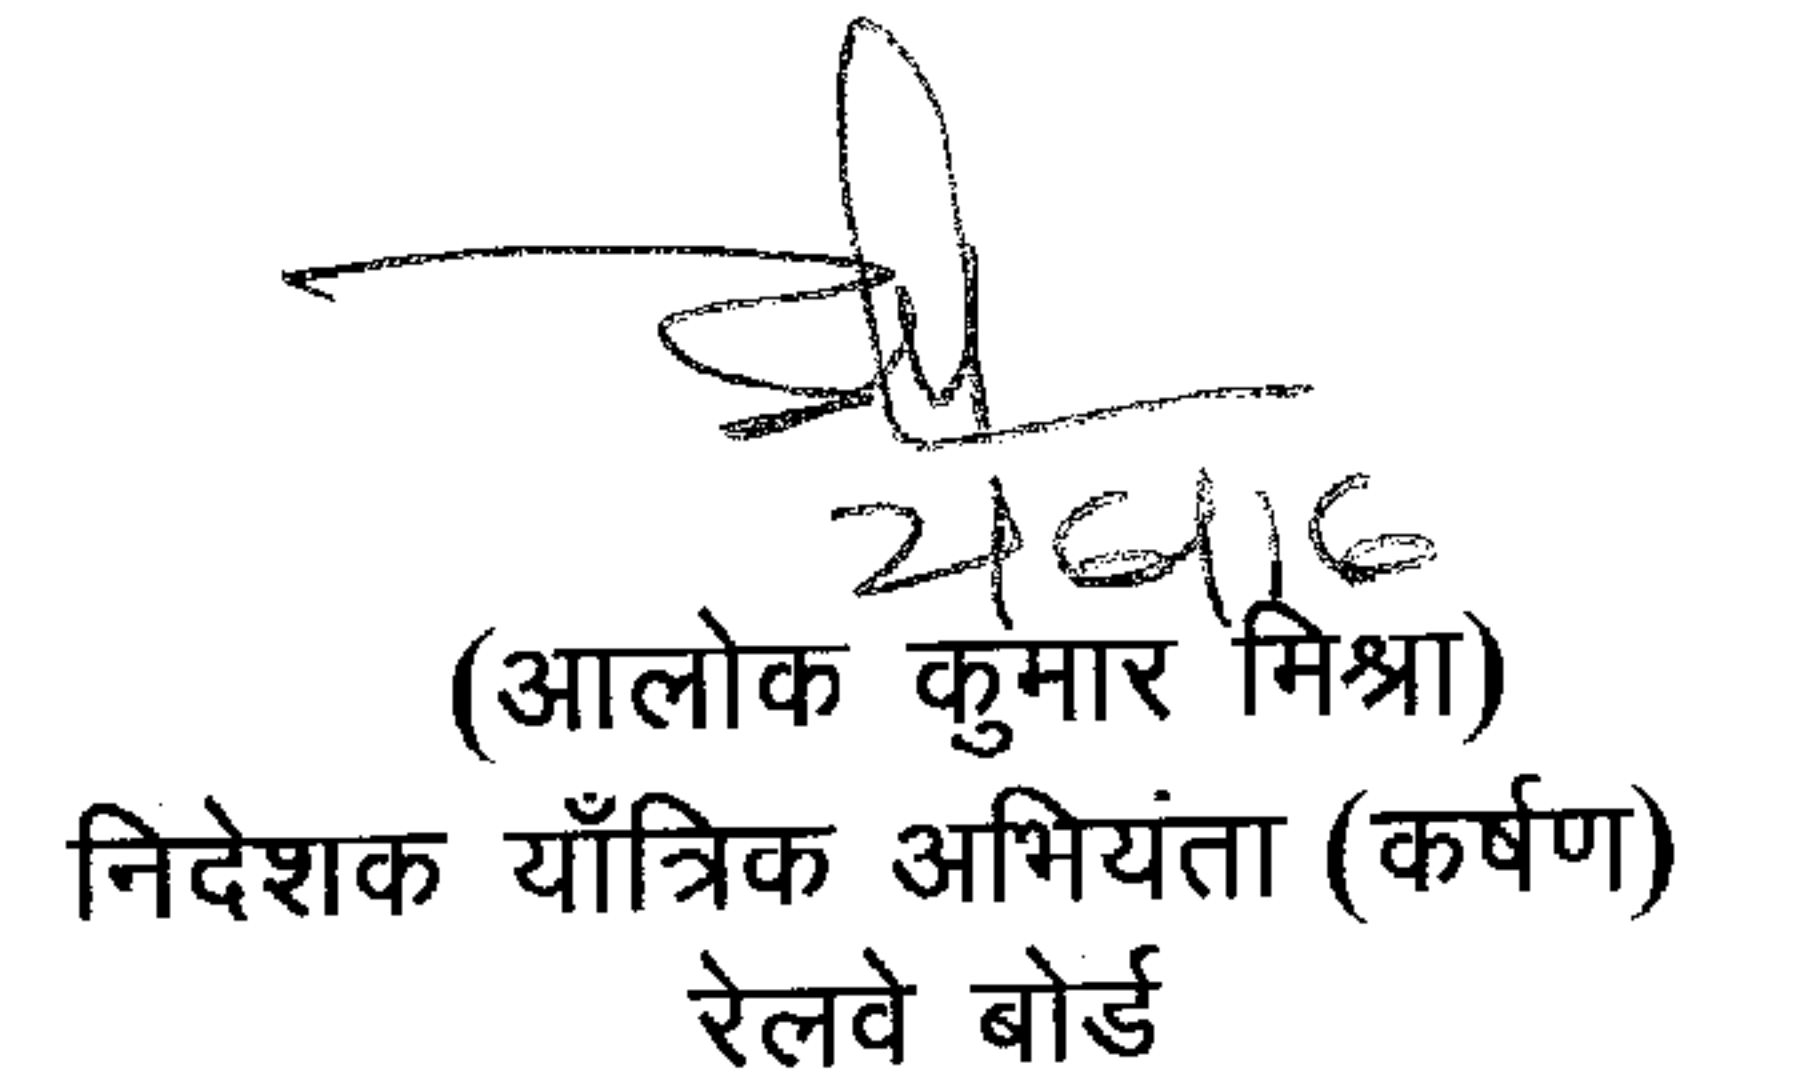 2/6/16
(आलोक कुमार मिश्रा)
निदेशक याँत्रिक अभियंता (कर्षण)
रेलवे बोर्ड